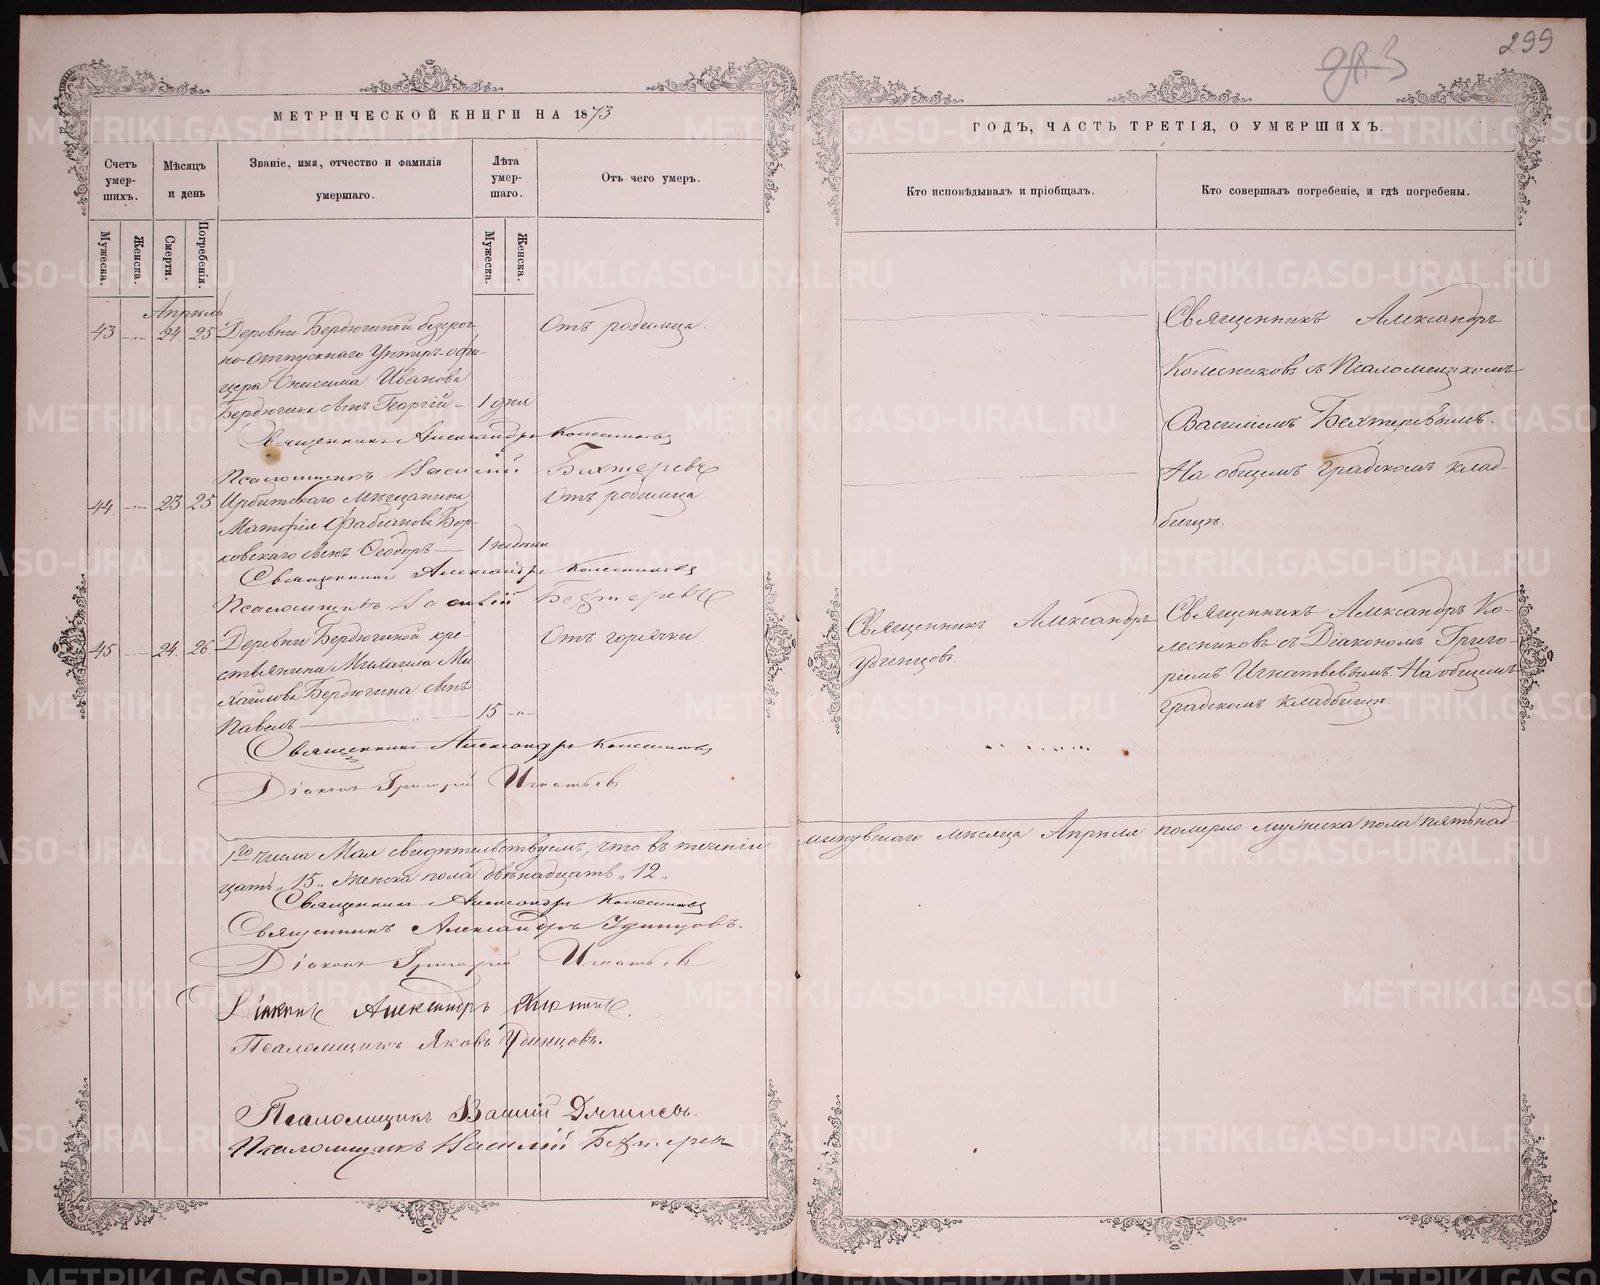 299
МЕТРИЧЕСКОЙ КНИГИ НА 1873
ГОДЪ, ЧАСТЬ ТРЕТІЯ, О УМЕРШИХЪ.
Счетъ умер-
шихъ.
Мѣсяцъ
и день
Званіе, имя, отчество и фамилія
умершаго.
Лѣта
умер-
шаго.
Отъ чего умеръ.
Кто исповѣдывалъ и пріобщалъ.
Кто совершалъ погребеніе, и гдѣ погребены.
Мужеска.
Женска.
Смерти.
Погребенія.
Мужеска.
Женска.
Апрѣль
43 -„- 24 25 Деревни Бердюгиной безсроч-
но-отпускнаго Унтеръ-офи-
цера Онисима Иванова
Бердюгина сынъ Георгій - 1 дня
Отъ родимца.
Священникъ Александръ Колесниковъ
Псаломщикъ Василій Бехтеревъ
Священникъ Александръ
Колесниковъ съ Псаломщикомъ
Василіемъ Бехтеревымъ.
На общемъ градскомъ клад-
бищѣ.
44 -„- 23 25 Ирбитскаго мѣщанина
Матфія Фабіанова Бор-
ковскаго сынъ Ѳеодоръ - 1 недѣли
Отъ родимца
Священникъ Александръ Колесниковъ
Псаломщикъ Василій Бехтеревъ
45 -„- 24 26 Деревни Бердюгиной кре-
стьянина Михаила Ми-
хайлова Бердюгина сынъ
Павелъ 15 -„-
Отъ горячки
Священникъ Александръ Колесниковъ
Діаконъ Григорій Игнатьевъ
Священникъ Александръ
Удинцовъ.
Священникъ Александръ Ко-
лесниковъ съ Діакономъ Григо-
ріемъ Игнатьевымъ. На общемъ
градскомъ кладбищѣ.
1го числа Мая свидѣтельствуемъ, что въ теченіи минувшаго мѣсяца Апрѣля померло мужеска пола пятьнад-
цать „15„ женска пола двѣнадцать „12„
Священникъ Александръ Колесниковъ
Священникъ Александръ Удинцовъ.
Діаконъ Григорій Игнатьевъ
Діаконъ Александръ
Псаломщикъ Яковъ Удинцовъ.
Псаломщикъ Василій
Псаломщикъ Василій Бехтеревъ
METRIKI.GASO-URAL.RU